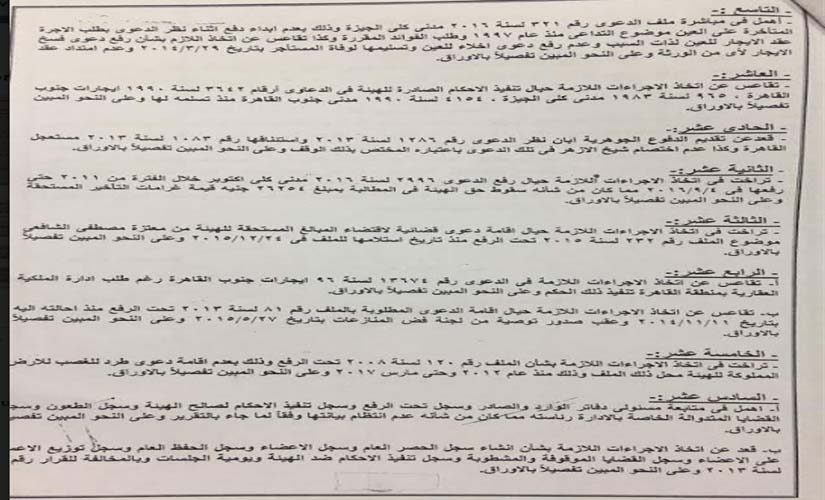 - التاسع :-
- أهمل فى مباشرة ملف الدعوى رقم ٣٢١ لسنة ٢٠١٦ مدنى كلى الجيزة وذلك بعدم ابداء دفع أثناء نظر الدعوى بطلب الاجرة
المتأخرة على العين موضوع التداعى منذ عام ١٩٩٧ وطلب الفوائد المقررة وكذا تقاعس عن اتخاذ اللازم بشأن رفع دعوى فسخ
عقد الايجار للعين لذات السبب وعدم رفع دعوى اخلاء للعين وتسليمها لوفاة المستأجر بتاريخ ٢٠١٤/٣/٢٩ وعدم امتداد عقد
الايجار لأى من الورثة وعلى النحو المبين تفصيلاً بالاوراق.
- العاشر :-
- تقاعس عن اتخاذ الاجراءات اللازمة حيال تنفيذ الاحكام الصادرة للهيئة فى الدعاوى أرقام ٣٦٤٢ لسنة ١٩٩٠ ايجارات جنوب
القاهرة ، ٩٦٥ لسنة ١٩٨٣ مدنى كلى الجيزة ، ٤١٥٤ لسنة ١٩٩٠ مدنى جنوب القاهرة منذ تسلمه لها وعلى النحو المبين
تفصيلاً بالاوراق.
- الحادى عشر :-
- قعد عن تقديم الدفوع الجوهرية ابان نظر الدعوى رقم ١٢٨٦ لسنة ٢٠١٣ واستئنافها رقم ١٠٨٣ لسنة ٢٠١٣ مستعجل
القاهرة وكذا عدم اختصام شيخ الازهر فى تلك الدعوى باعتباره المختص بذلك الوقف وعلى النحو المبين تفصيلاً بالاوراق.
- الثانية عشر :-
- تراخت فى اتخاذ الاجراءات اللازمة حيال رفع الدعوى ٢٩٩٦ لسنة ٢٠١٦ مدنى كلى اكتوبر خلال الفترة من ٢٠١١ حتى
رفعها فى ٢٠١٦/٩/٤ مما كان من شأنه سقوط حق الهيئة فى المطالبة بمبلغ ٢٦٢٥٤ جنيه قيمة غرامات التأخير المستحقة
وعلى النحو المبين تفصيلاً بالاوراق.
- الثالثة عشر :-
- تراخت فى اتخاذ الاجراءات اللازمة حيال اقامة دعوى قضائية لاقتضاء المبالغ المستحقة للهيئة من معتزة مصطفى الشافعى
موضوع الملف رقم ٢٣٢ لسنة ٢٠١٥ تحت الرفع منذ تاريخ استلامها للملف فى ٢٠١٥/١٢/٢٤ وعلى النحو المبين تفصيلاً
بالاوراق.
- الرابع عشر :-
أ- تقاعس عن اتخاذ الاجراءات اللازمة فى الدعوى رقم ١٣٦٧٤ لسنة ٩٦ ايجارات جنوب القاهرة رغم طلب ادارة الملكية
العقارية بمنطقة القاهرة تنفيذ ذلك الحكم وعلى النحو المبين تفصيلاً بالاوراق.
ب- تقاعس عن اتخاذ الاجراءات اللازمة حيال اقامة الدعوى المطلوبة بالملف رقم ٨١ لسنة ٢٠١٣ تحت الرفع منذ احالته اليه
بتاريخ ٢٠١٤/١١/١١ وعقب صدور توصية من لجنة فض المنازعات بتاريخ ٢٠١٥/٥/٢٧ وعلى النحو المبين تفصيلاً
بالاوراق.
- الخامسة عشر :-
- تراخت فى اتخاذ الاجراءات اللازمة بشأن الملف رقم ١٢٠ لسنة ٢٠٠٨ تحت الرفع وذلك بعدم اقامة دعوى طرد للغصب للارض
المملوكة للهيئة محل ذلك الملف وذلك منذ عام ٢٠١٢ وحتى مارس ٢٠١٧ وعلى النحو المبين تفصيلاً بالاوراق.
- السادس عشر :-
أ- أهمل فى متابعة مسئولى دفاتر الوارد والصادر وسجل تحت الرفع وسجل تنفيذ الاحكام لصالح الهيئة وسجل الطعون وسجل
القضايا المتداولة الخاصة بالادارة رئاسته مما كان من شأنه عدم انتظام بياناتها وفقاً لما جاء بالتقرير وعلى النحو المبين
بالاوراق.
ب- قعد عن اتخاذ الاجراءات اللازمة بشأن انشاء سجل الحصر العام وسجل الاعضاء وسجل الحفظ العام وسجل توزيع
على الاعضاء وسجل القضايا الموقوفة والمشطوبة وسجل تنفيذ الاحكام ضد الهيئة ويومية الجلسات وبالمخالفة للقرار رقم
لسنة ٢٠١٣ وعلى النحو المبين تفصيلاً بالاوراق.